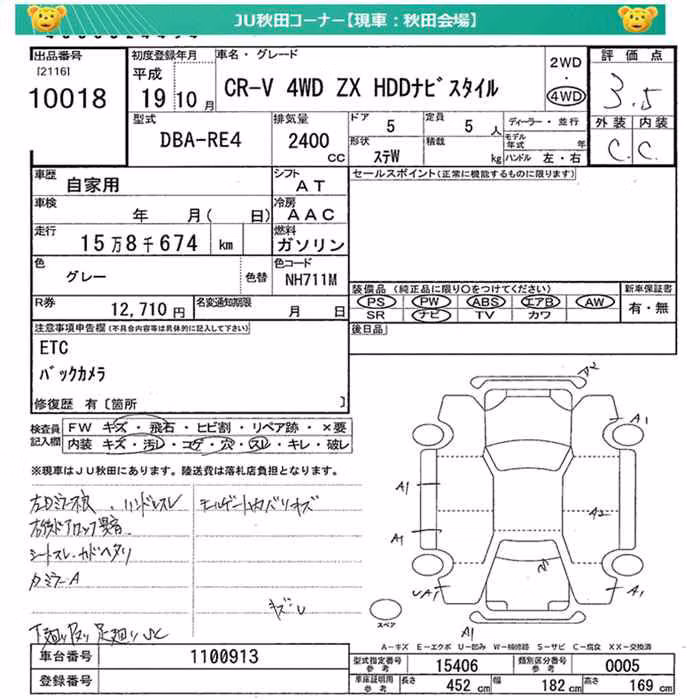 JU秋田コーナー【現車：秋田会場】
出品番号
[2116]
10018
初度登録年月
平成
19 10 月
車名・グレード
CR-V 4WD ZX HDDﾅﾋﾞｽﾀｲﾙ
2WD
・
4WD
評価点
3.5
外装 内装
C. C.
型式
DBA-RE4
排気量
2400
CC
ドア
5
定員
5 人
形状
ｽﾃW
積載
kg
ディーラー・並行
モデル年式 年
ハンドル 左・右
車歴
自家用
シフト
AT
セールスポイント(正常に機能するものに限ります)
車検
年 月( 日)
冷房
AAC
走行
15万8千674 km
燃料
ガソリン
色
グレー
色替
色コード
NH711M
R券
12,710 円
名変通知期限
月 日
装備品 (純正品に限り○をつけてください)
PS PW ABS エアB AW
SR ナビ TV カワ
新車保証書
有・無
後日品
注意事項申告欄(不具合内容等は具体的に記入して下さい)
ETC
バックカメラ
修復歴 有〔箇所 〕
検査員記入欄
FW キズ・飛石・ヒビ割・リペア跡・×要
内装 キズ・汚レ・コゲ・穴・スレ・キレ・破レ
※現車はJU秋田にあります。陸送費は落札店負担となります。
ハンドルスレ
シートスレ
キズレ
A2
A1
A1
A1
A2
A1
A1
スペア
A-キズ E-エクボ U-凹み W-補修跡 S-サビ C-腐食 XX-交換済
車台番号
1100913
登録番号
型式指定番号
参考
15406
類別区分番号
参考
0005
車庫証明用
参考
長さ 452 cm 幅 182 cm 高さ 169 cm